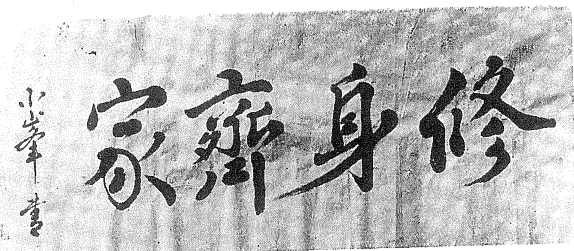 修身齊家
小峯書